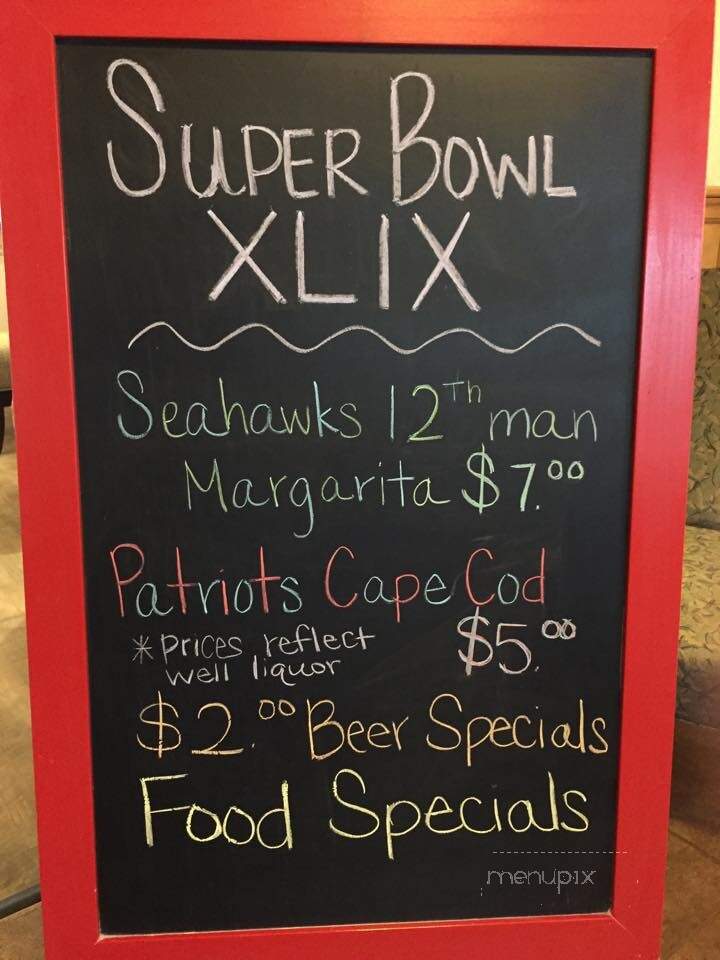 SUPER BOWL
XLIX
Seahawks 12Th man
Margarita $7.00
Patriots Cape Cod
*prices reflect
well liquor
$5.00
$2.00 Beer Specials
Food Specials
menupix